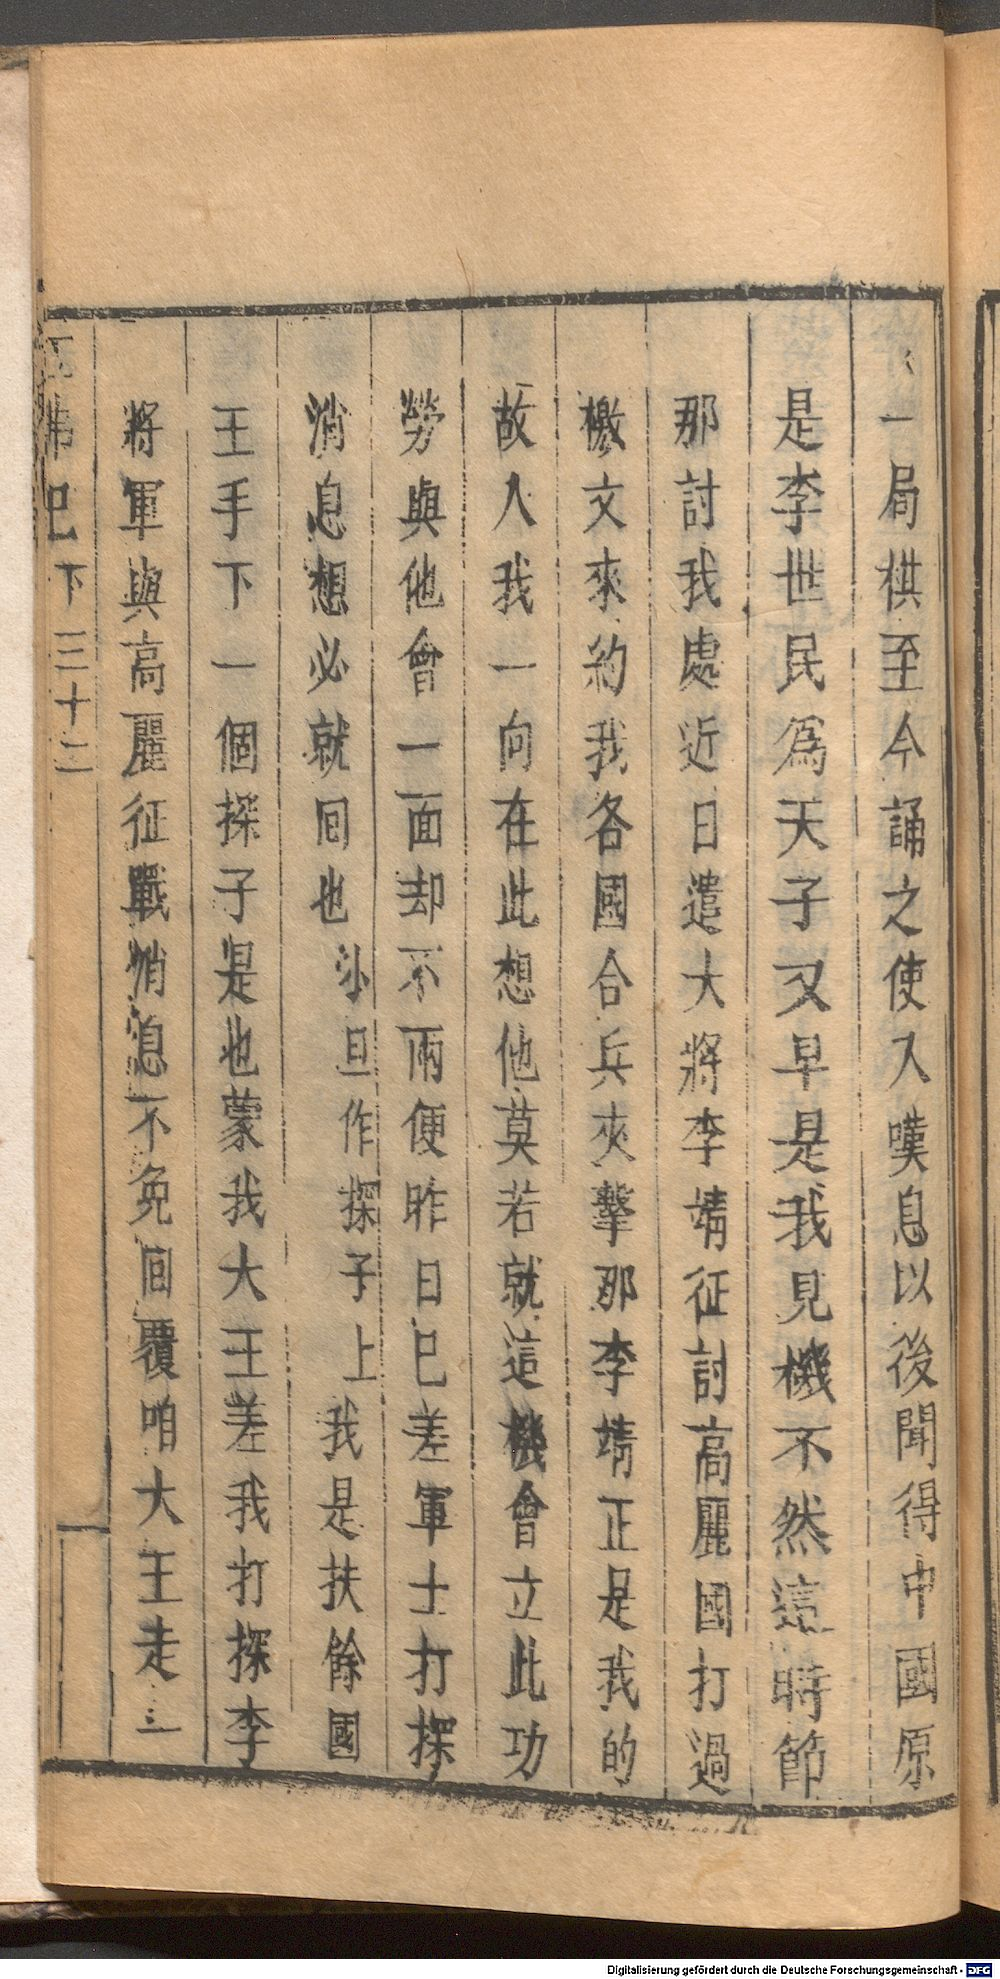 一局棋至今誦之使人嘆息以後聞得中國原
是李世民爲天子又早是我見機不然這時節
那討我處近日遣大將李靖征討高麗國打過
檄文來約我各國合兵夾擊那李靖正是我的
故人我一向在此想他莫若就這機會立此功
勞與他會一面却不兩便昨日已差軍士打探
消息想必就囘也小旦作探子上我是扶餘國
王手下一個探子是也蒙我大王差我打探李
將軍與高麗征戰消息不免囘覆咱大王走
下 三十二
Digitalisierung gefördert durch die Deutsche Forschungsgemeinschaft - DFG